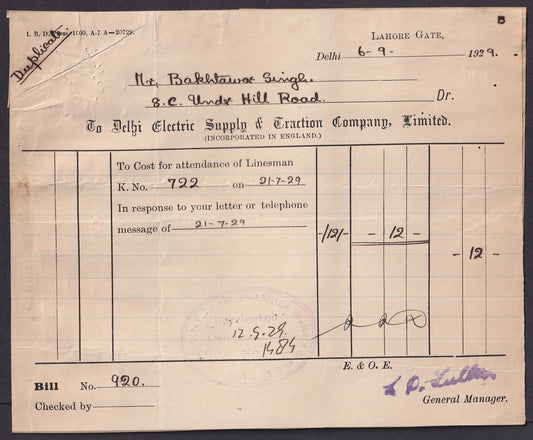 I. B. D. 1000, A-7 A—20729.
Duplicate
LAHORE GATE,
Delhi 6-9- 1929.
Mr. Bakhtawar Singh.
8.C. Undr Hill Road. Dr.
To Delhi Electric Supply & Traction Company, Limited.
(INCORPORATED IN ENGLAND.)
To Cost for attendance of Linesman
K. No. 722 on 21-7-29
In response to your letter or telephone
message of 21-7-29
-/12/- - 12 -
- 12 -
12.9.29
E. & O. E.
Bill No. 920.
Checked by
General Manager.